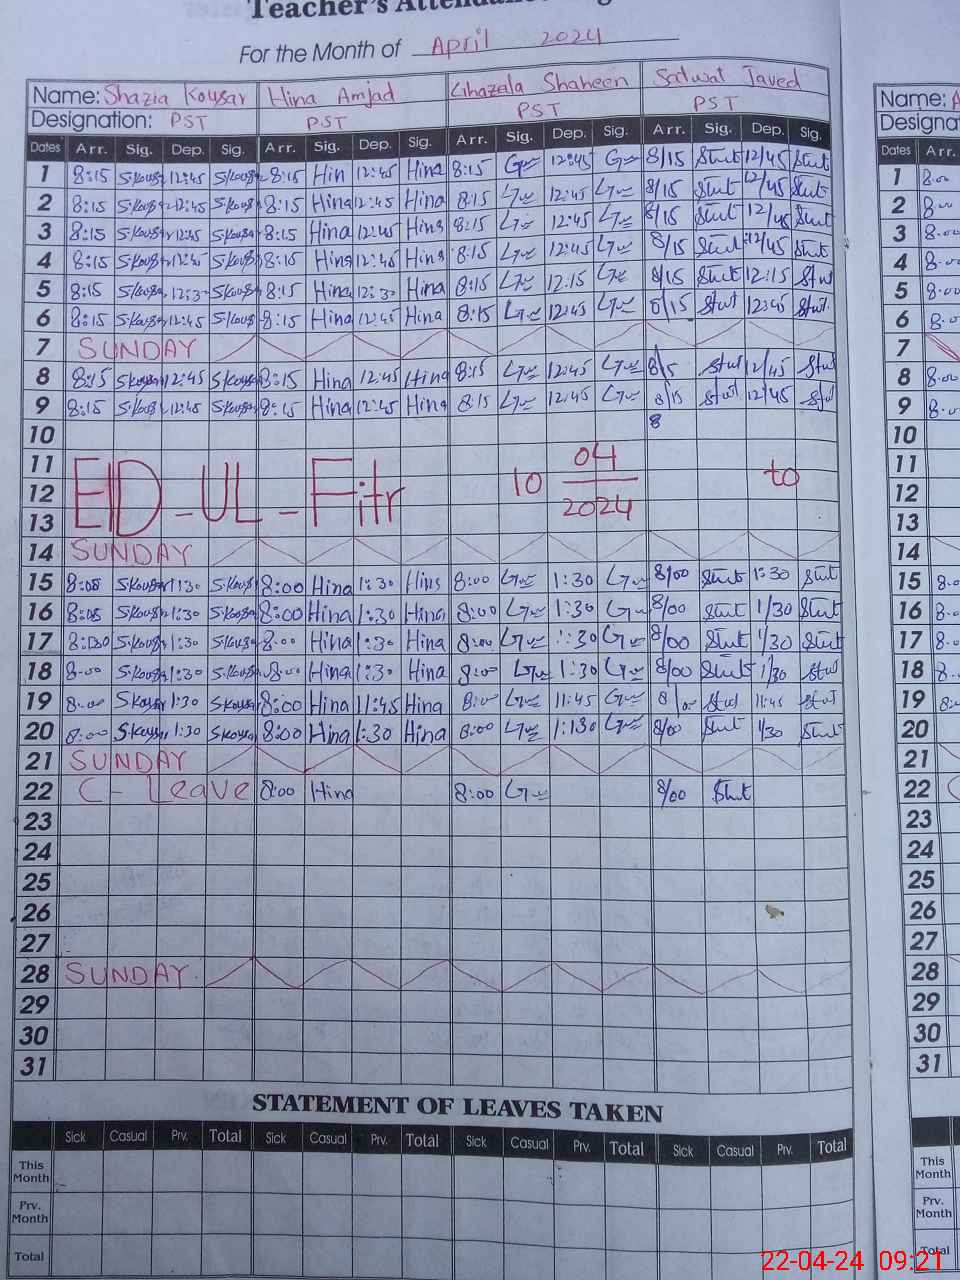 Teacher's Attendance
For the Month of April 2024
Name: Shazia Kousar Hina Amjad Ghazala Shaheen Satwat Javed Name:
Designation: PST PST PST PST
Dates Arr. Sig. Dep. Sig. Arr. Sig. Dep. Sig. Arr. Sig. Dep. Sig. Arr. Sig. Dep. Sig. Dates Arr.
1 8:15 S.Kousar 12:45 S.Kousar 8:15 Hin 12:45 Hina 8:15 12:45 8/15 12/45 1 8:00
2 8:15 S.Kousar 12:45 S.Kousar 8:15 Hina 12:45 Hina 8:15 12:45 8/15 12/45 2 8:00
3 8:15 S.Kousar 12:45 S.Kousar 8:15 Hina 12:45 Hina 8:15 12:45 8/15 12/45 3 8:00
4 8:15 S.Kousar 12:45 S.Kousar 8:15 Hina 12:45 Hina 8:15 12:45 8/15 12/45 4 8:00
5 8:15 S.Kousar 12:30 S.Kousar 8:15 Hina 12:30 Hina 8:15 12:15 8/15 12:15 5 8:00
6 8:15 S.Kousar 12:45 S.Kousar 8:15 Hina 12:45 Hina 8:15 12:45 8/15 12:45 6 8:00
7 SUNDAY 7
8 8:15 S.Kousar 12:45 S.Kousar 8:15 Hina 12:45 Hina 8:15 12:45 12/45 8 8:00
9 8:15 S.Kousar 12:45 S.Kousar 8:15 Hina 12:45 Hina 8:15 12:45 8/15 12/45 9 8:00
10 8 10
11 11
12 EID-UL-Fitr 10 04 2024 to 12
13 13
14 SUNDAY 14
15 8:00 S.Kousar 1:30 S.Kousar 8:00 Hina 1:30 Hina 8:00 1:30 8/00 1:30 15 8:00
16 S.Kousar 1:30 S.Kousar 8:00 Hina 1:30 Hina 8:00 1:30 8/00 1/30 16 8:00
17 S.Kousar 1:30 S.Kousar 8:00 Hina 1:30 Hina 8:00 1:30 8/00 1/30 17 8:00
18 8:00 S.Kousar 1:30 S.Kousar 8:00 Hina 1:30 Hina 8:00 1:30 8/00 1/30 18
19 8:00 S.Kousar 1:30 S.Kousar 8:00 Hina 11:45 Hina 8:00 11:45 8/00 11:45 19
20 8:00 S.Kousar 1:30 S.Kousar 8:00 Hina 1:30 Hina 8:00 1:130 8/00 1/30 20
21 SUNDAY 21
22 C- Leave 8:00 Hina 8:00 8/00 22
23 23
24 24
25 25
26 26
27 27
28 SUNDAY 28
29 29
30 30
31 31
STATEMENT OF LEAVES TAKEN
Sick Casual Prv. Total Sick Casual Prv. Total Sick Casual Prv. Total Sick Casual Prv. Total
This Month This Month
Prv. Month Prv. Month
Total Total
22-04-24 09:21